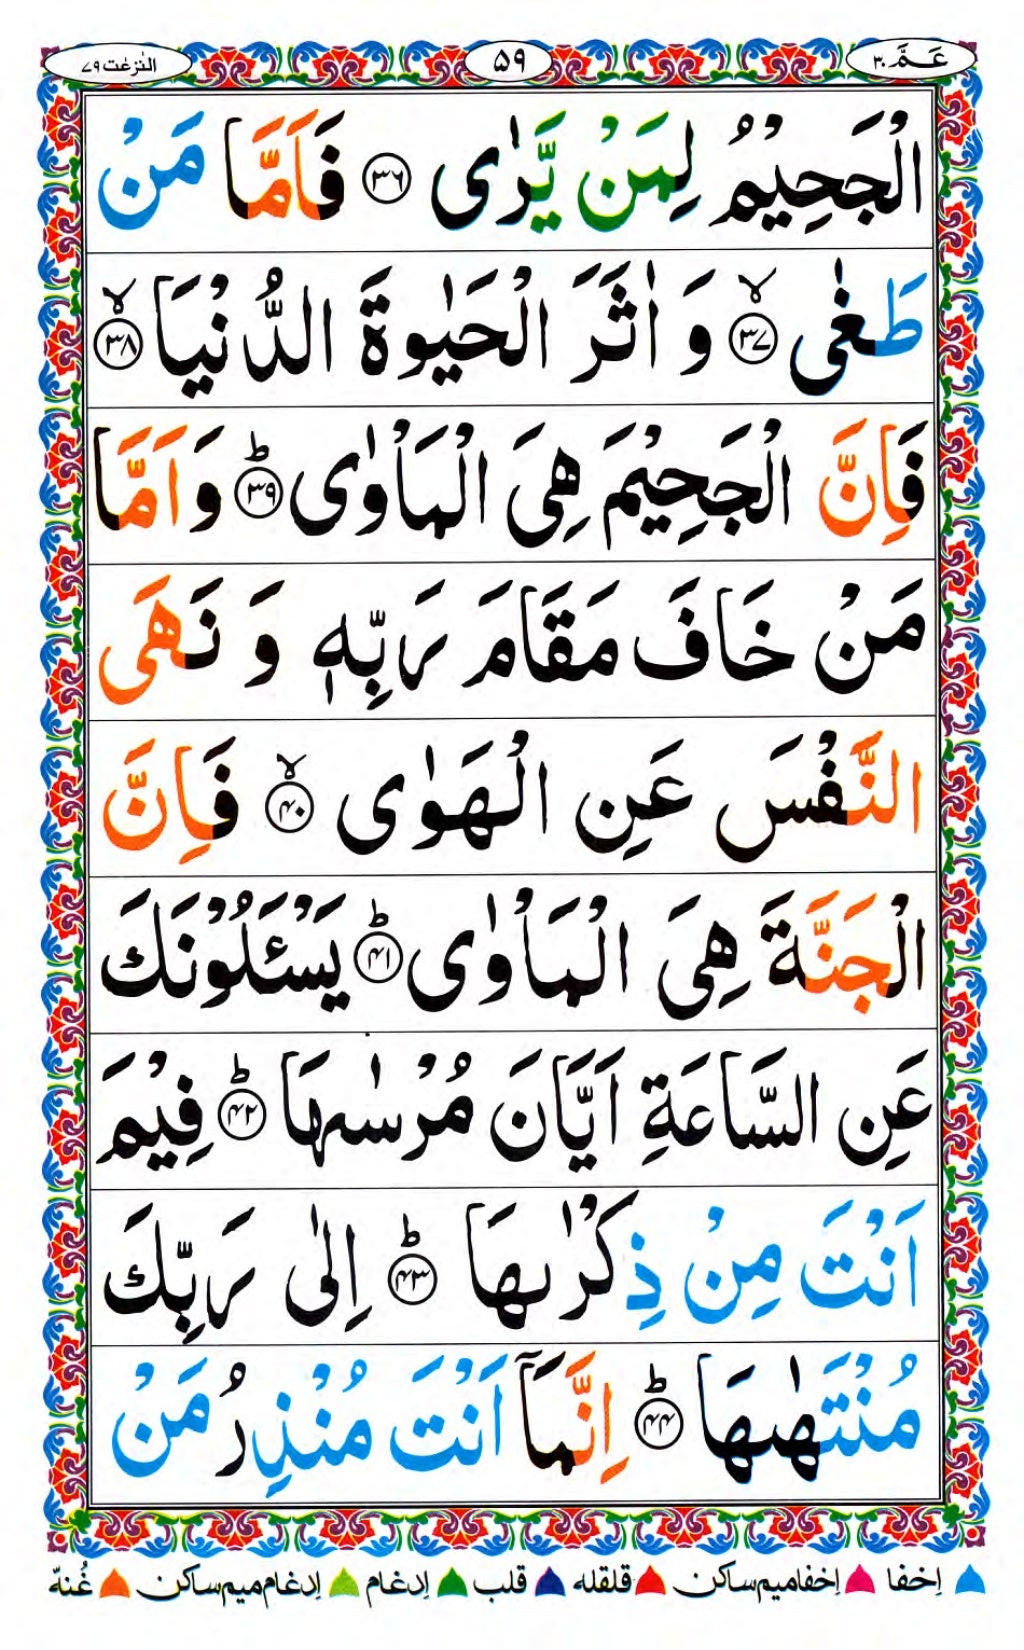 عَمَّ ۳۰
۵۹
النّٰزعٰت ۷۹
الْجَحِیْمُ لِمَنْ یَّرٰی ﴿۳۶﴾ فَاَمَّا مَنْ
طَغٰی ﴿۳۷﴾ۙ وَ اٰثَرَ الْحَیٰوةَ الدُّنْیَا ﴿۳۸﴾ۙ
فَاِنَّ الْجَحِیْمَ هِیَ الْمَاْوٰی ﴿۳۹﴾ؕ وَ اَمَّا
مَنْ خَافَ مَقَامَ رَبِّهٖ وَ نَهَی
النَّفْسَ عَنِ الْهَوٰی ﴿۴۰﴾ۙ فَاِنَّ
الْجَنَّةَ هِیَ الْمَاْوٰی ﴿۴۱﴾ؕ یَسْـَٔلُوْنَكَ
عَنِ السَّاعَةِ اَیَّانَ مُرْسٰىهَا ﴿۴۲﴾ؕ فِیْمَ
اَنْتَ مِنْ ذِكْرٰىهَا ﴿۴۳﴾ؕ اِلٰی رَبِّكَ
مُنْتَهٰىهَا ﴿۴۴﴾ؕ اِنَّمَاۤ اَنْتَ مُنْذِرُ مَنْ
اِخفا اِخفامیم ساکن قلقله قلب اِدغام اِدغام میم ساکن غُنه